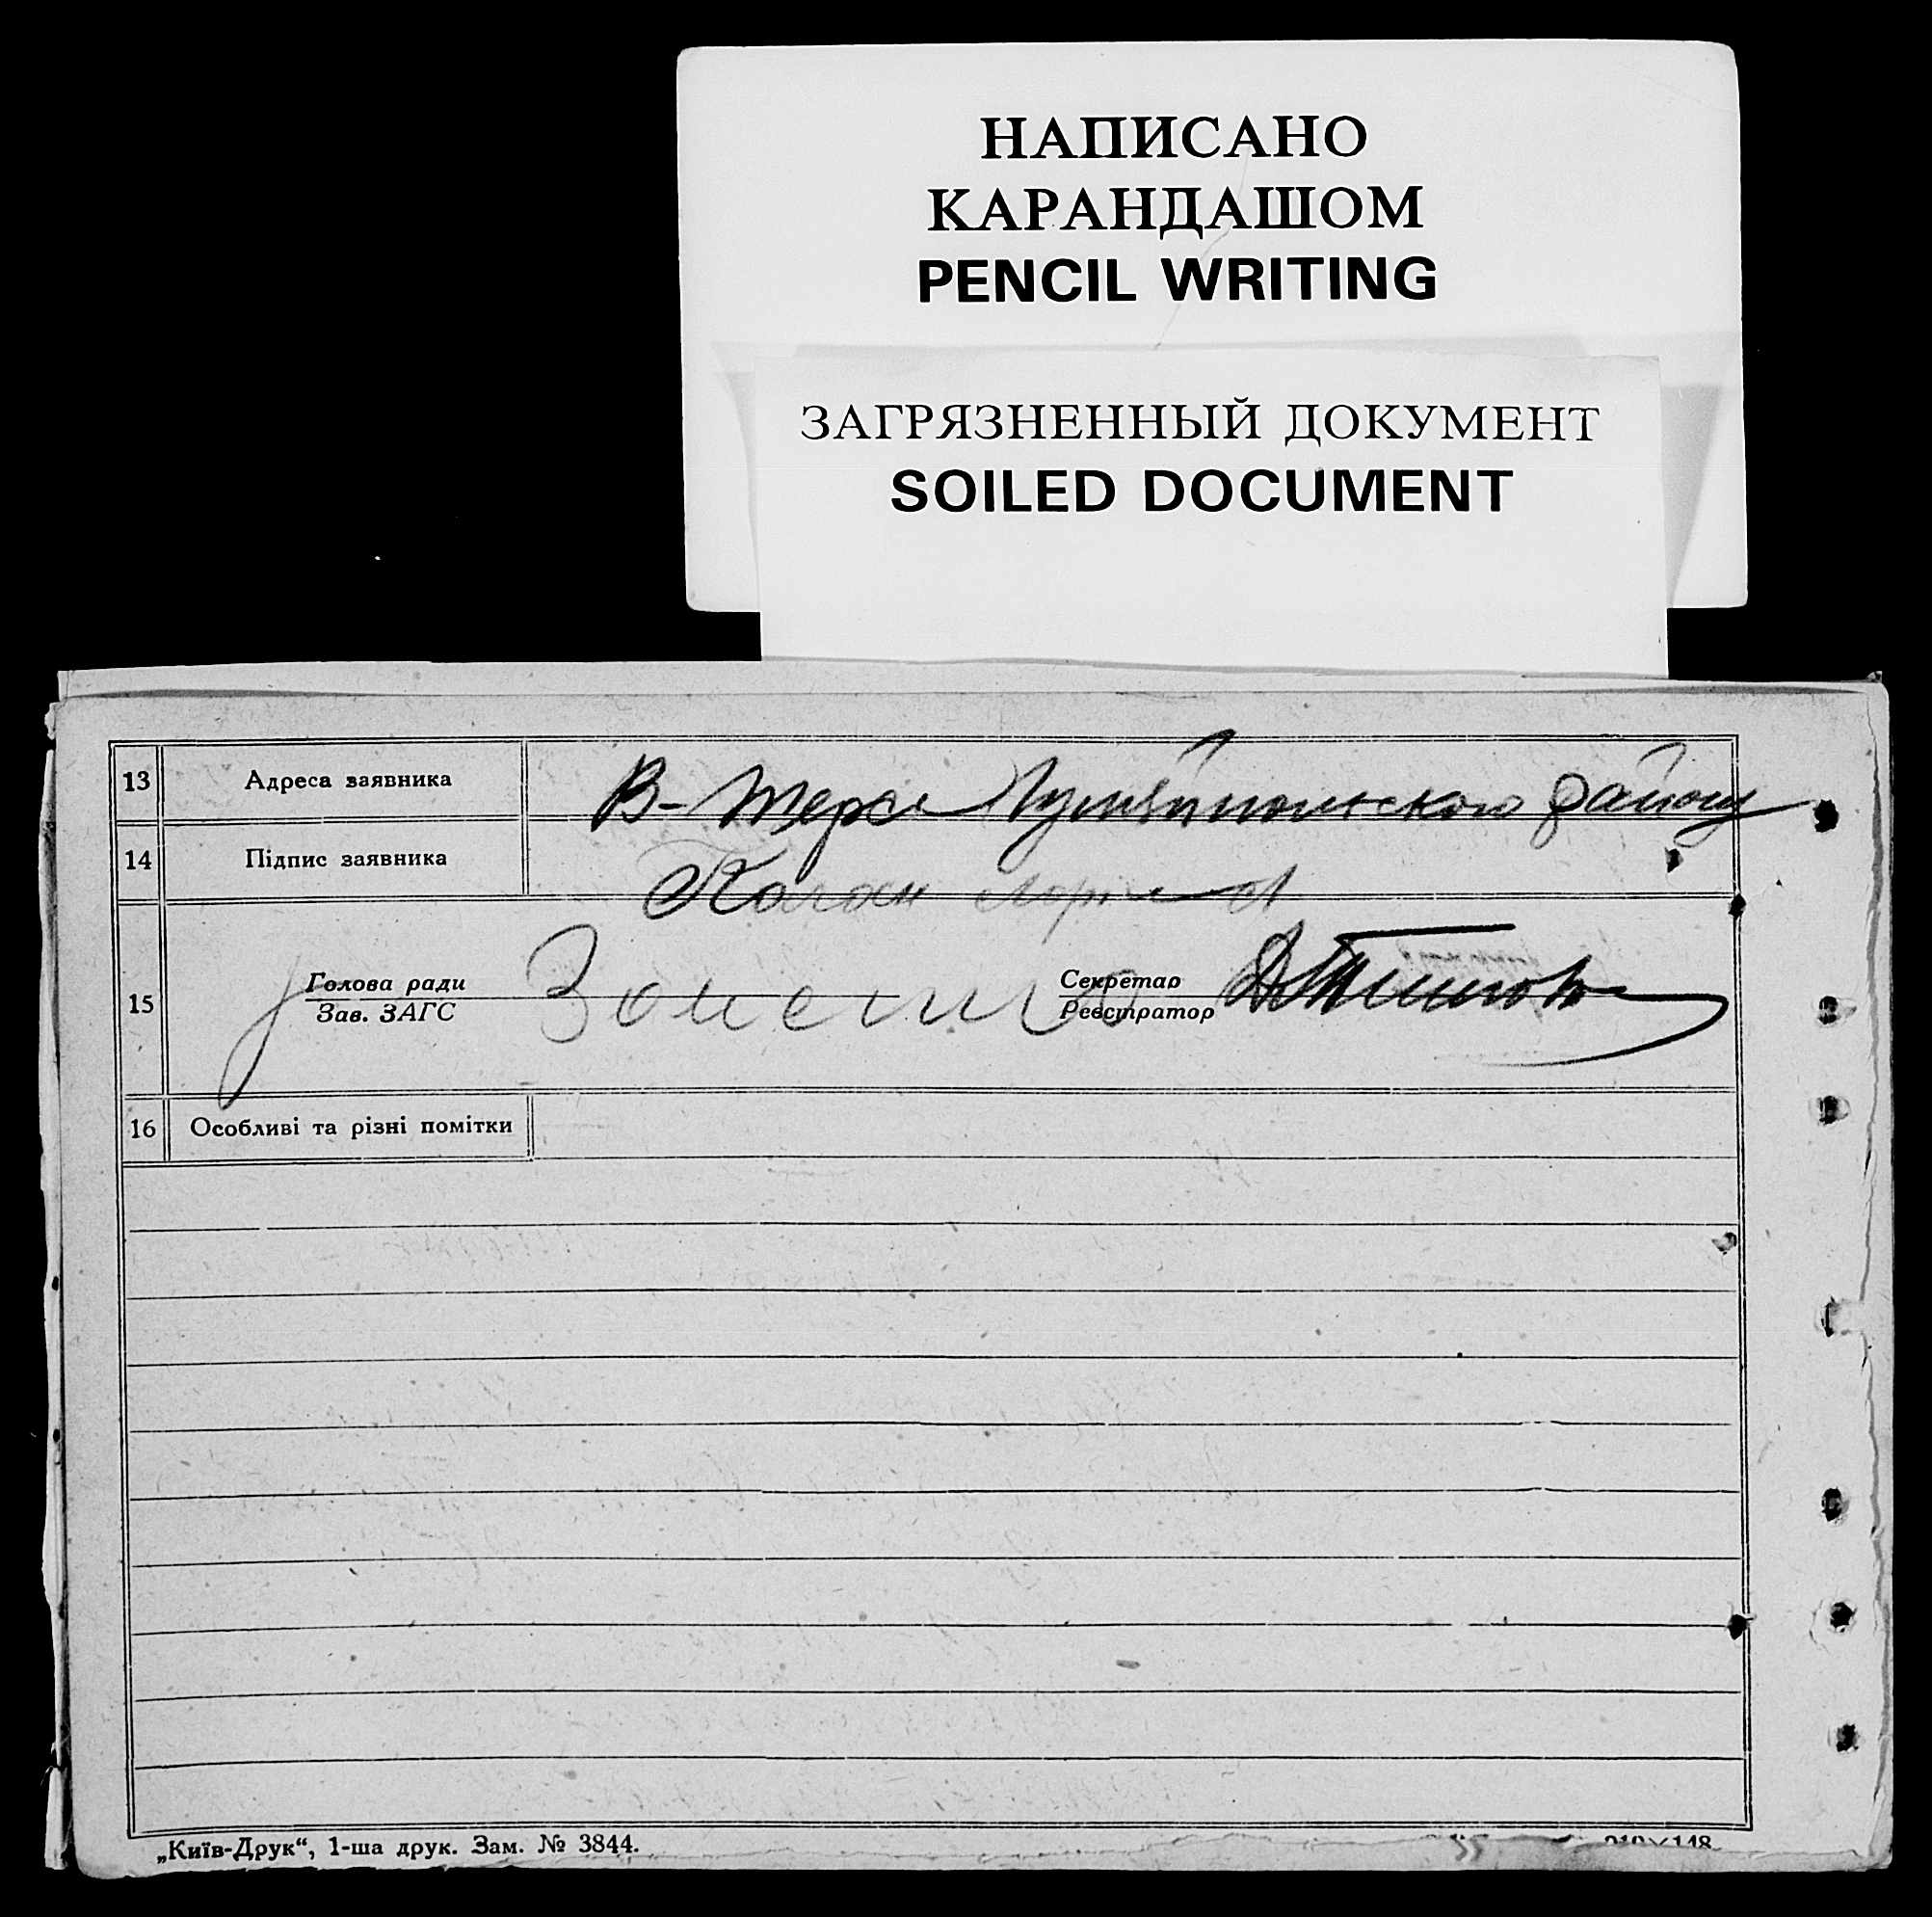 НАПИСАНО
КАРАНДАШОМ
PENCIL WRITING
ЗАГРЯЗНЕННЫЙ ДОКУМЕНТ
SOILED DOCUMENT
13 Адреса заявника В-Терса района
14 Підпис заявника Каган
Голова ради Секретар
15
Зав. ЗАГС Реєстратор
16 Особливі та різні помітки
„Київ-Друк“, 1-ша друк. Зам. № 3844.